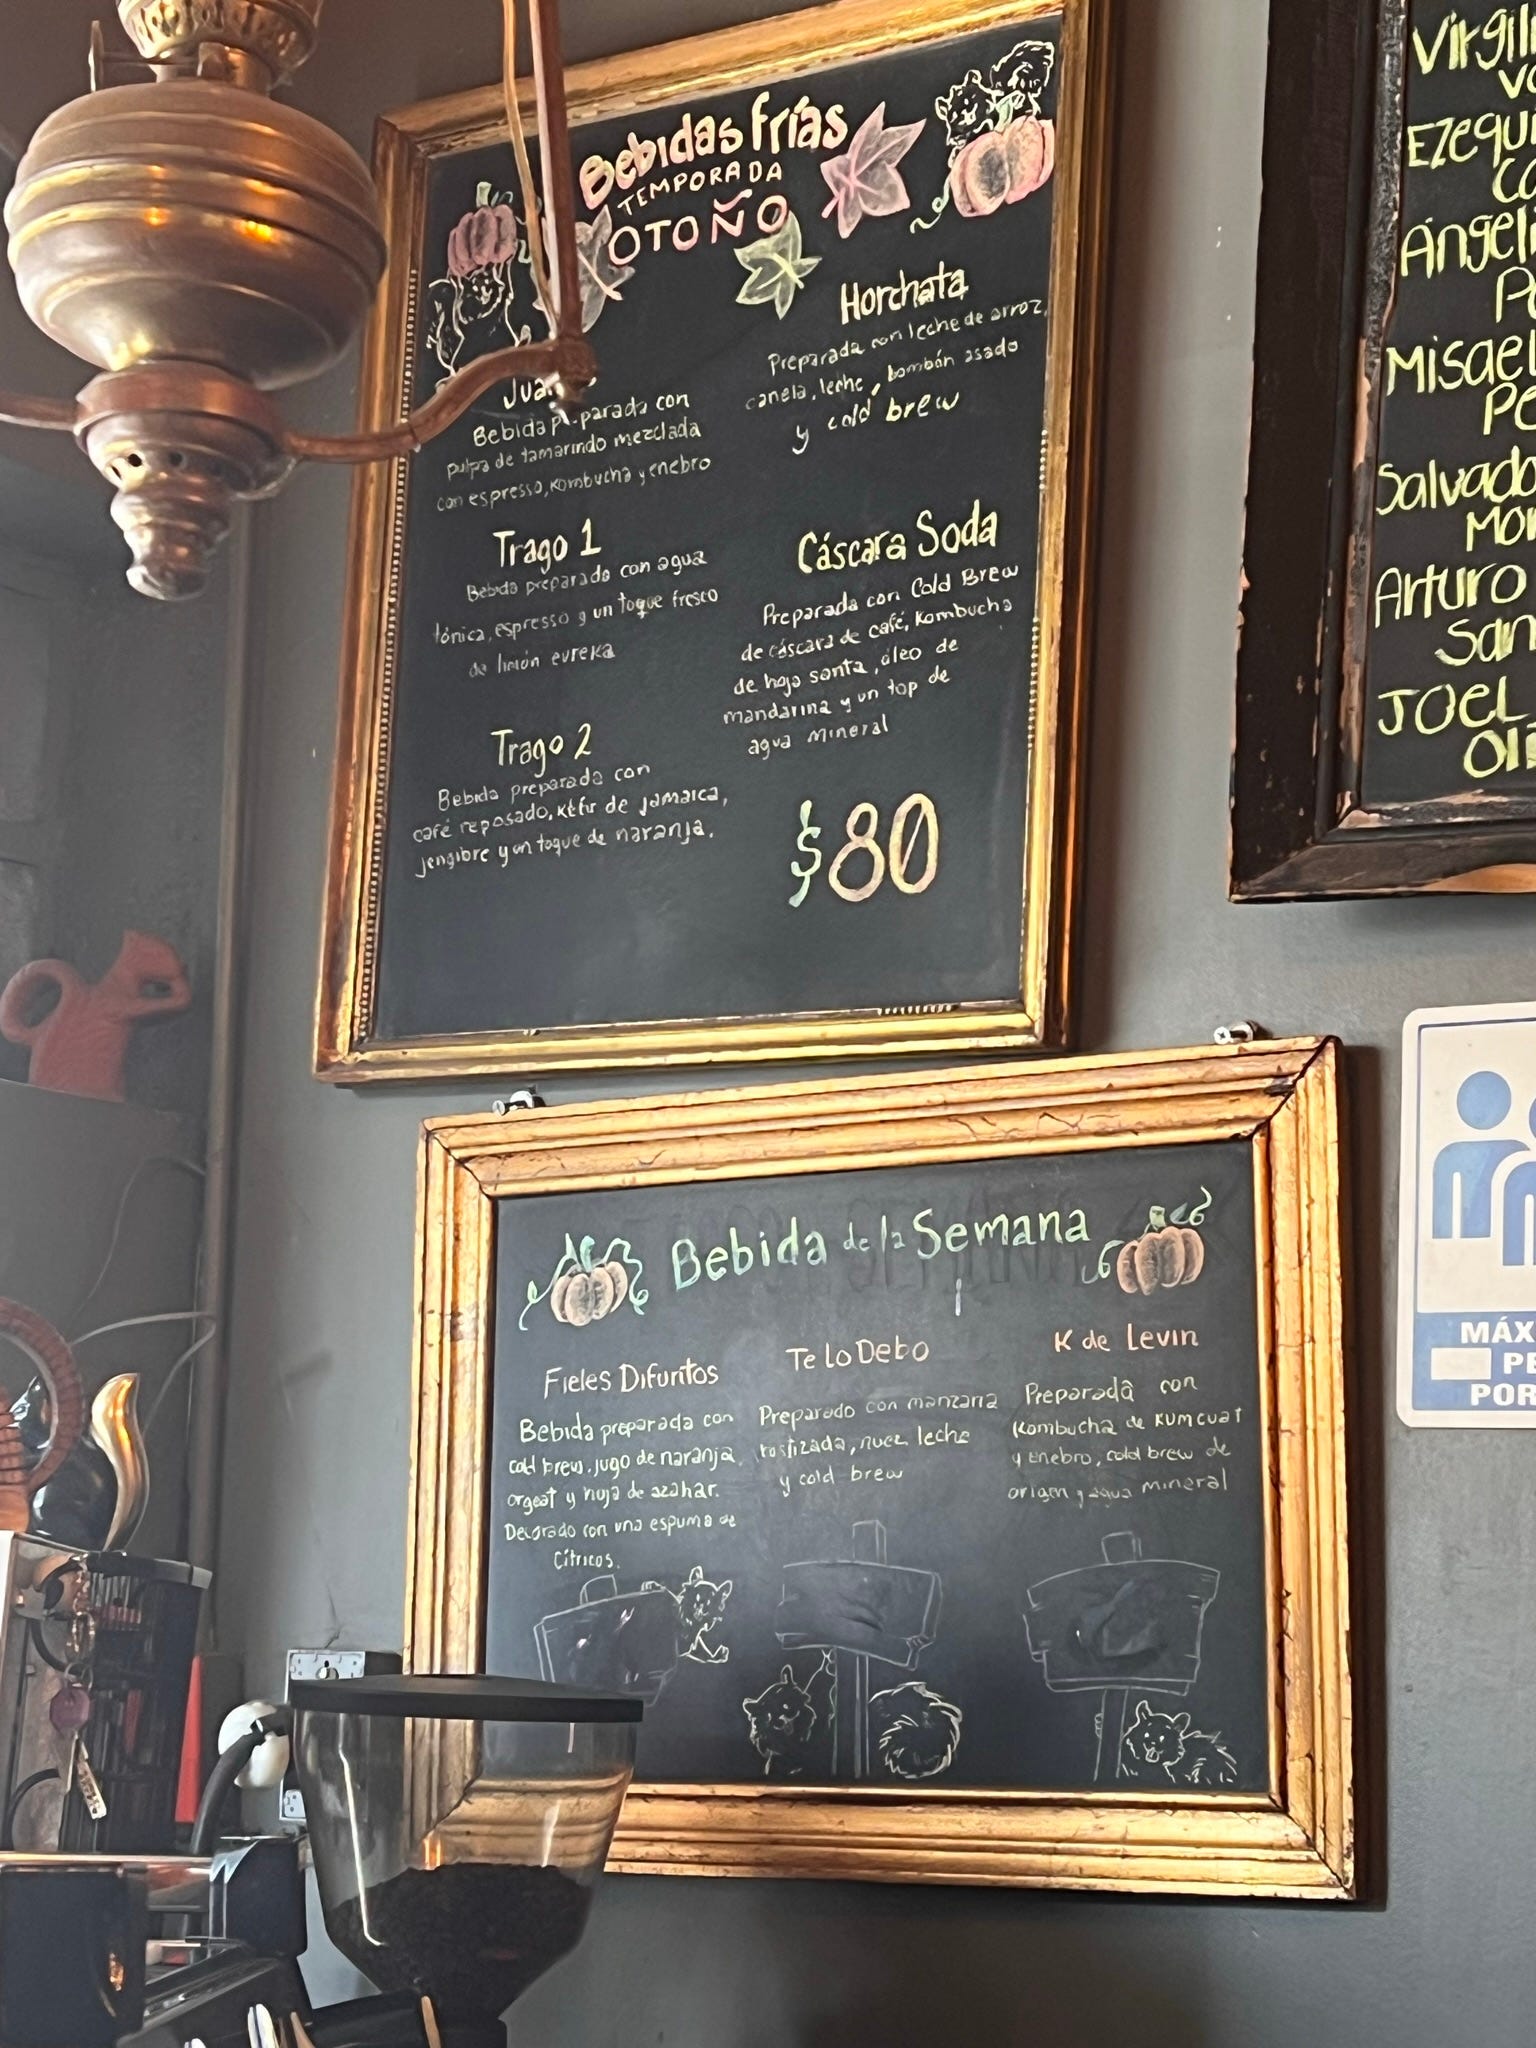 Bebidas frías
TEMPORADA
OTOÑO
Bebida preparada con
pulpa de tamarindo mezclada
con espresso, kombucha y enebro
Trago 1
Bebida preparada con agua
tónica, espresso y un toque fresco
de limón eureka
Trago 2
Bebida preparada con
café reposado, kéfir de jamaica,
jengibre y un toque de naranja.
Horchata
Preparada con leche de arroz,
canela, leche, bombón asado
y cold brew
Cáscara Soda
Preparada con Cold Brew
de cáscara de café, kombucha
de hoja santa, óleo de
mandarina y un top de
agua mineral
$80
Bebida de la Semana
Fieles Difuntos
Bebida preparada con
cold brew, jugo de naranja,
orgeat y hoja de azahar.
Decorado con una espuma de
Cítricos.
Te lo Debo
Preparado con manzana
rostizada, nuez, leche
y cold brew
K de Levin
Preparada con
Kombucha de KUMCUAT
y enebro, cold brew de
origen y agua mineral
Misael
Arturo
JOEL
MÁX
POR